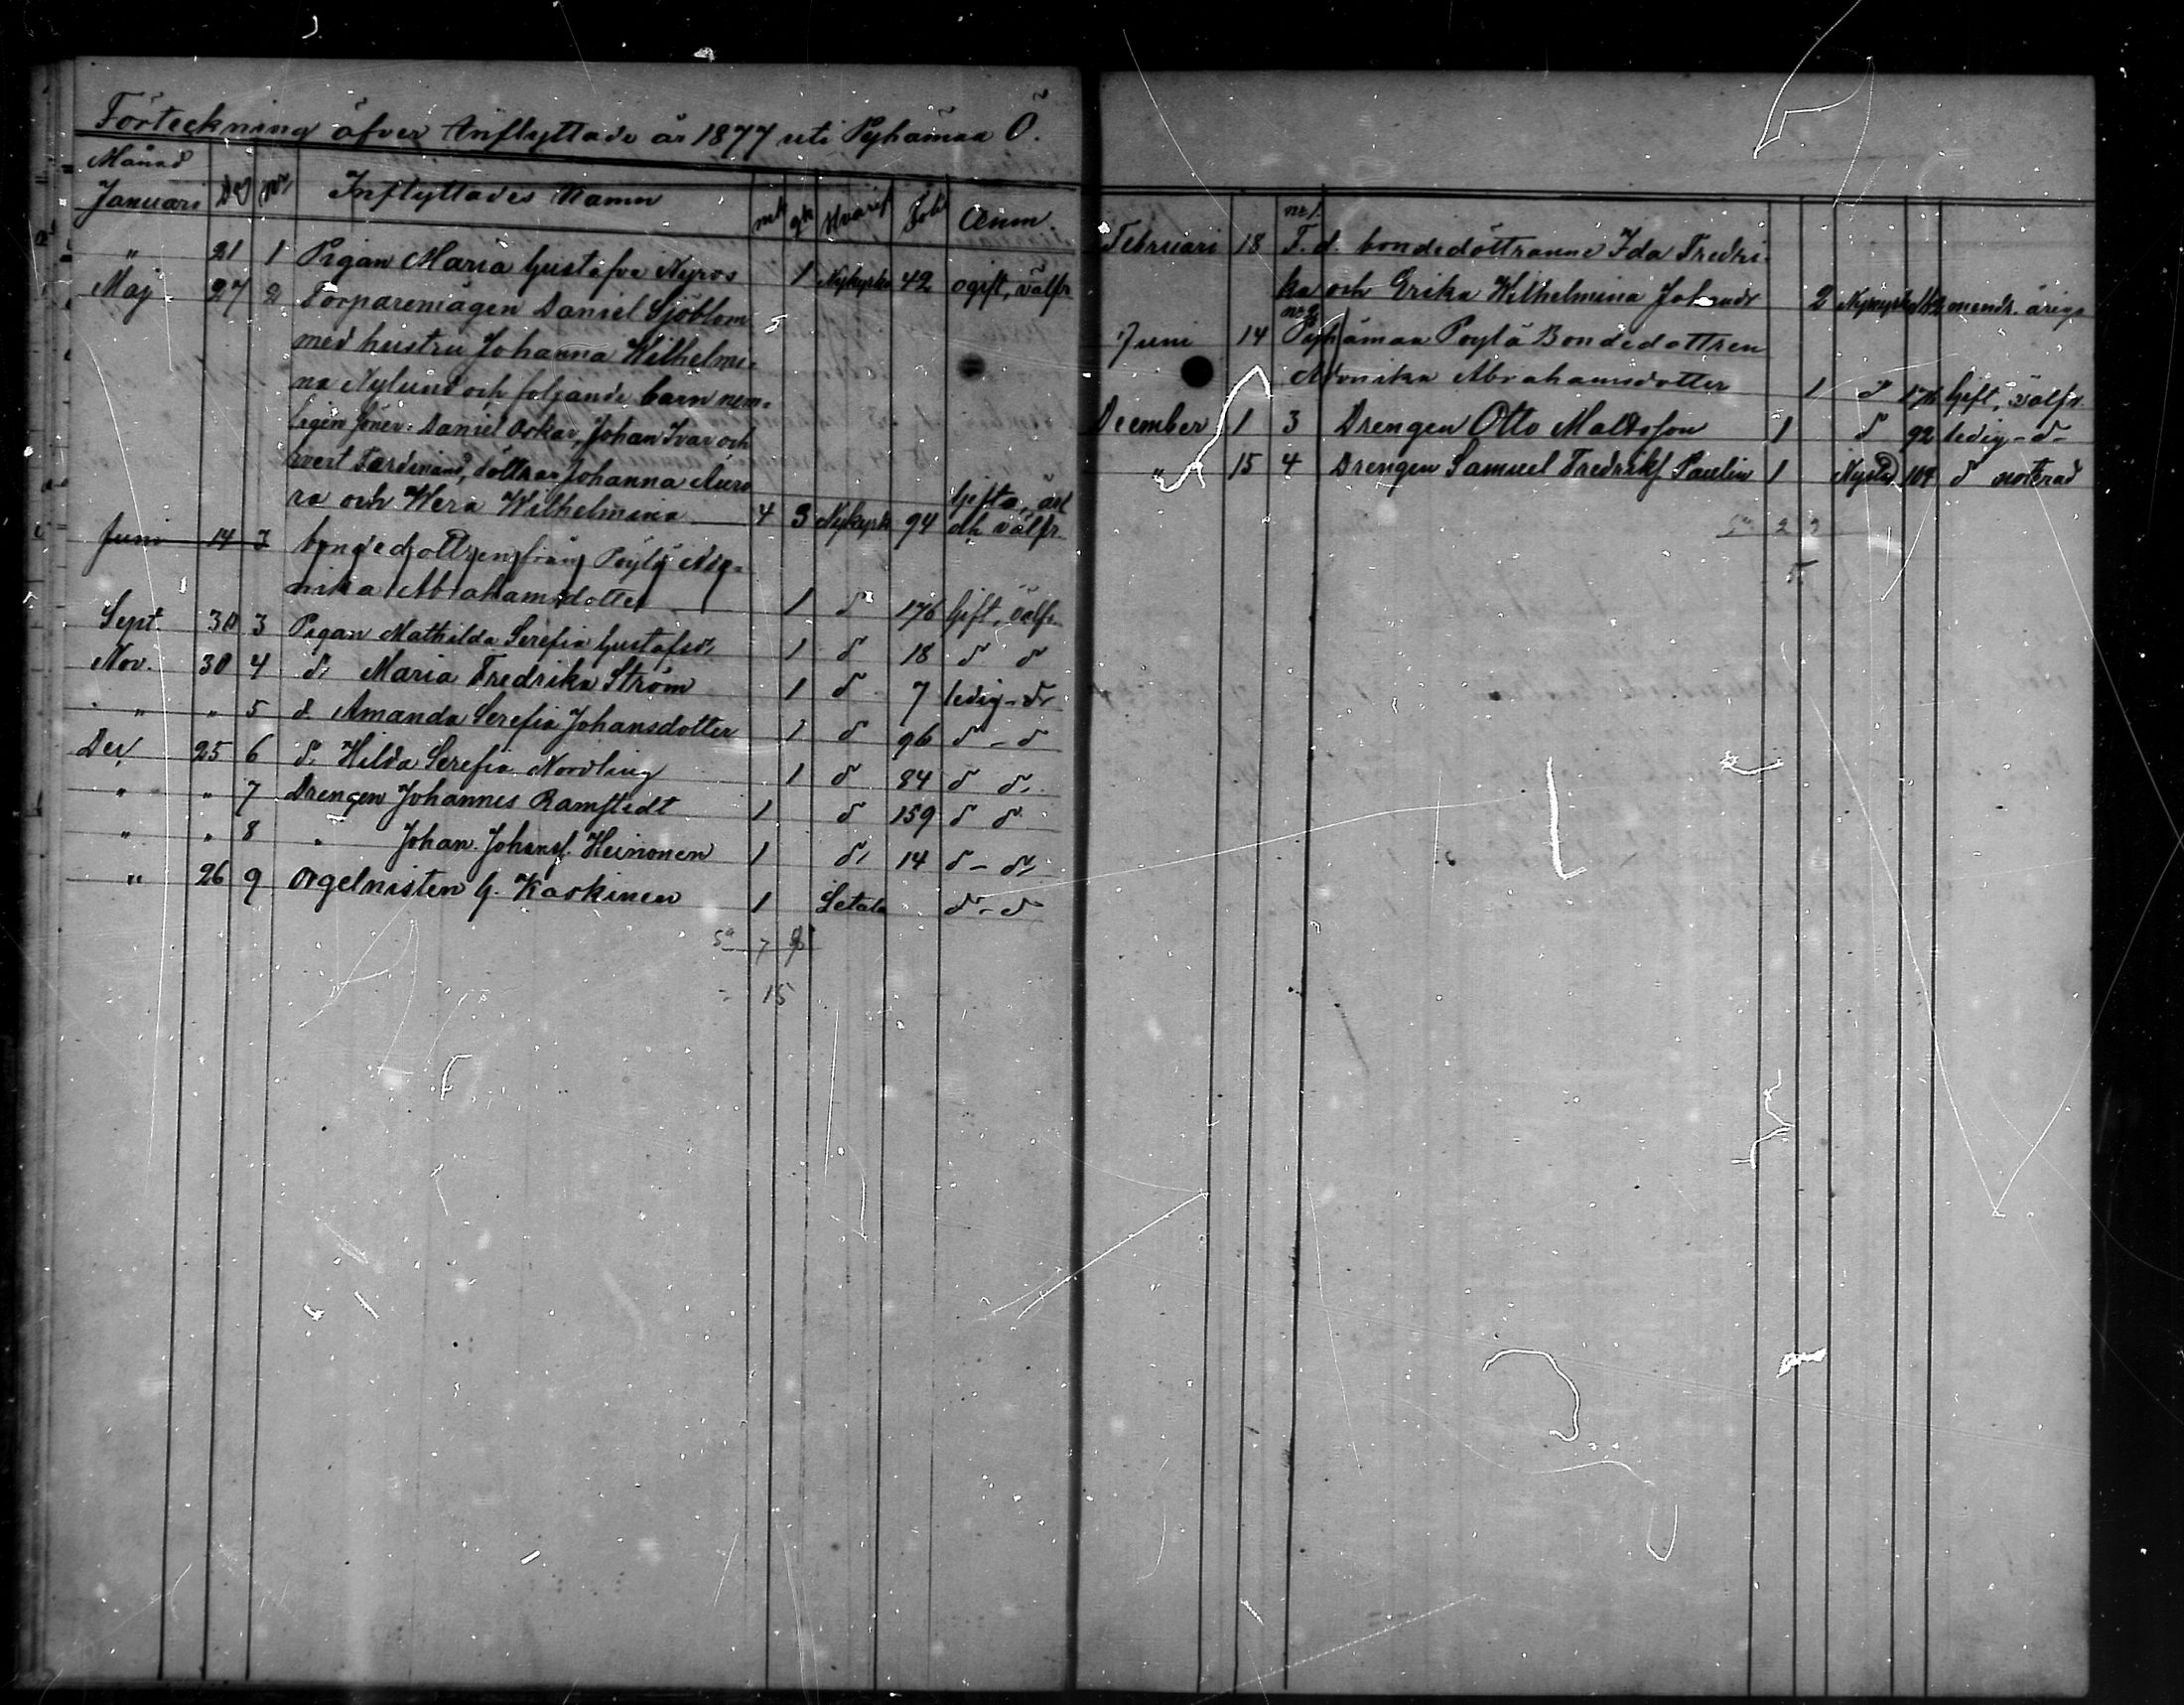 Förteckning öfver Inflyttade år 1877 uti Pyhämaa Ö.
Månad
Januari Dag Nr. Inflyttades Namn mk qk Hvarif. Foli Anm.
" 21 1 Pigan Maria Gustafva Nyros 1 Nykyrko 42 ogift, välfr.
Maj 27 2 Torparemågen Daniel Sjöblom
med hustru Johanna Wilhelmi-
na Nylund och foljande barn nem-
ligen söner: Daniel Oskar, Johan Ivar och
Ferdinand, döttrar Johanna Auro
ra och Wera Wilhelmina 4 3 Nykyrk 94 Gifta, ärl och välfr.
Juni 14 3 bondedottren från Pöytä Mo-
nika Abrahamsdotter 1 d 176 Gift, välfr.
Sept. 30 3 Pigan Mathilda Serefia Gustafsd. 1 d 18 d d
Nov. 30 4 d. Maria Fredrika Ström 1 d 7 ledig - d
" " 5 d. Amanda Serefia Johansdotter 1 d 96 d - d
Dec. 25 6 d. Hilda Serefia Nordling 1 d 84 d d.
" " 7 Drengen Johannes Ramstedt 1 d 159 d d
" " 8 " Johan Johansf. Heinonen 1 d. 14 d - d.
" 26 9 Orgelnisten G. Kaskinen 1 Letala d - d
Sa 7 8
= 15
Februari 18 nr 1. F. d. bondedöttranne Ida Fredri-
ka och Erika Wilhelmina Johansdr 2 Nykyrko mindr. åriga
Juni 14 nr 2 Pyhämaa Poytä Bondedottren
Monika Abrahamsdotter 1 d 176 Gift, välfr.
December 1 3 Drengen Otto Matdsson 1 d 92 ledig - d -
" 15 4 Drengen Samuel Fredriksf Paulin 1 Nystad 104 d noterad
Sa 2 3
5